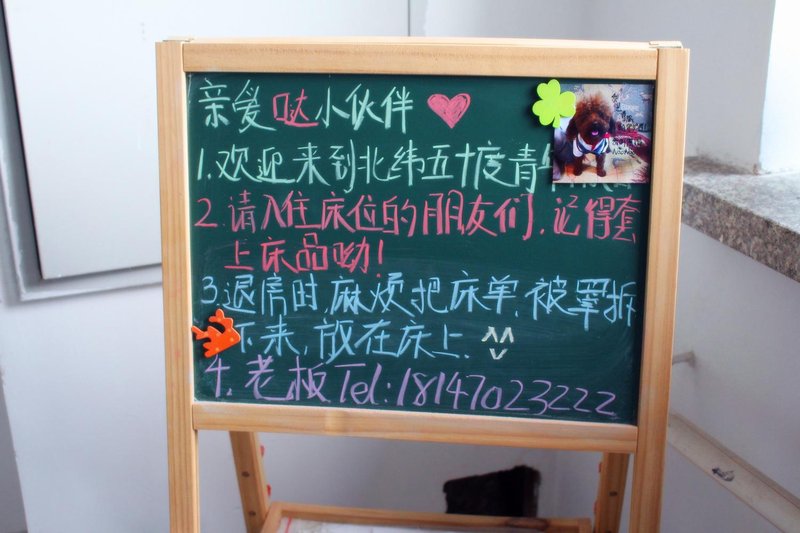 亲爱哒小伙伴
1.欢迎来到北纬五十度青年
2.请入住床位的朋友们.记得套
上床品呦!
3.退房时,麻烦把床单.被罩拆
下来,放在床上.^^
4.老板Tel:18147023222